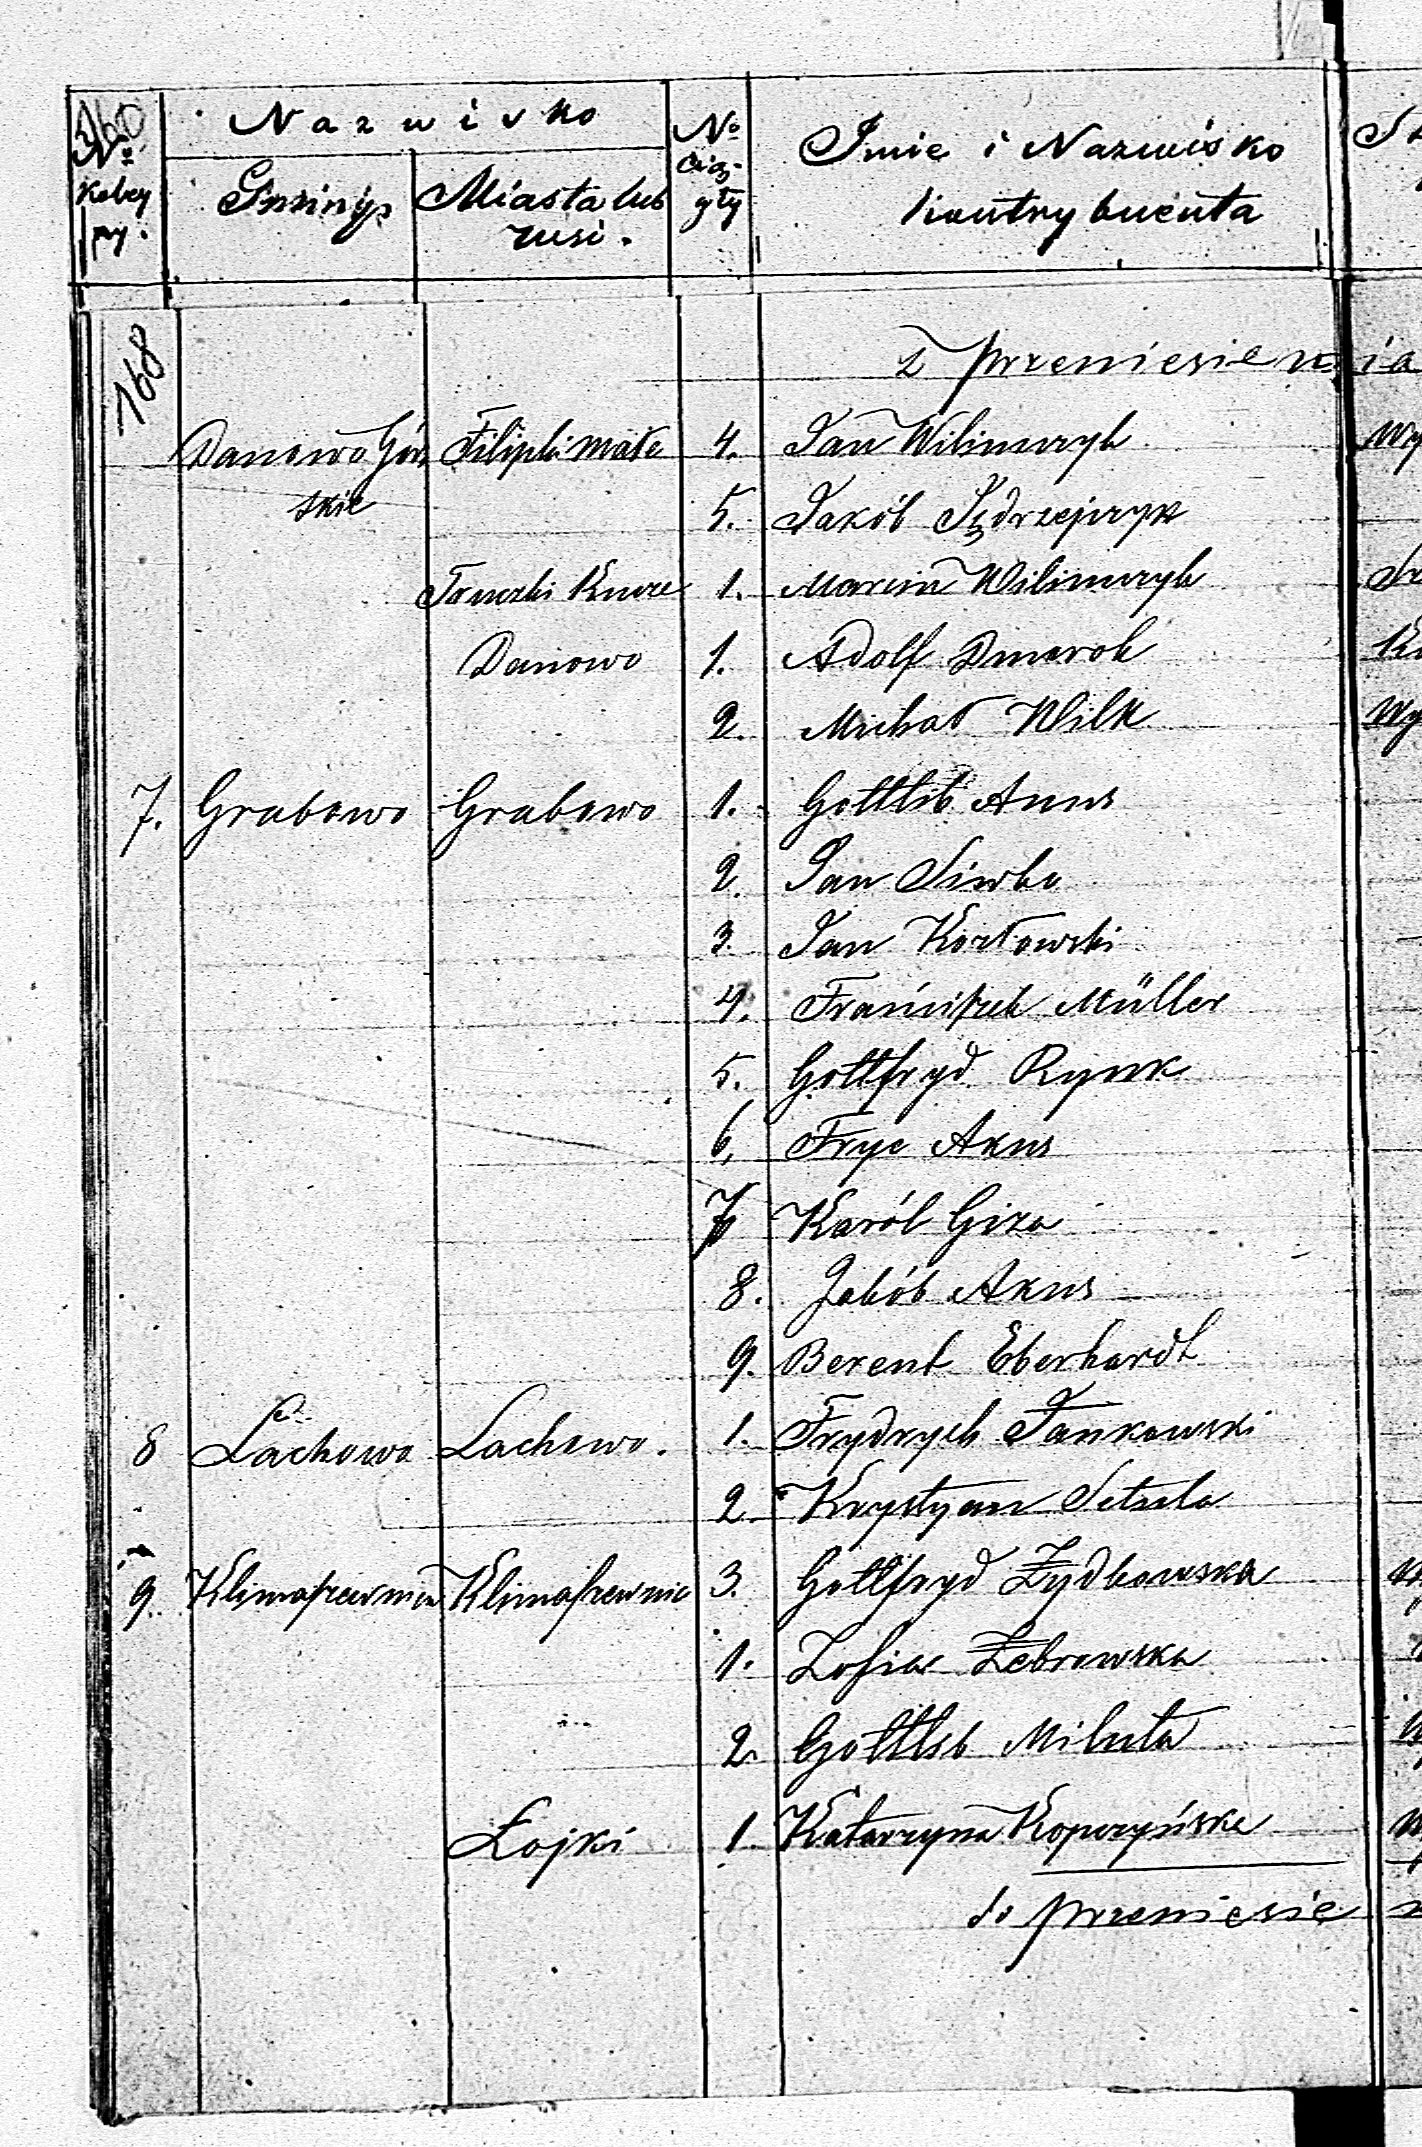 160
Nazwisko
No
koley
ny.
Gminy
Miasta lub
wsi.
No
ciąg-
gły
Imie i Nazwisko
kontrybuenta
168
z przeniesienia
Danowo Gór Filipki Małe 4. Jan Wilimczyk Wy
skie 5. Jakób Jędrzejczyk
Kurze 1. Marcin Wilimczyk
Danowo 1. Adolf
2. Michał Wilk Wy
7. Grabowo Grabowo 1. Gottlib
2. Jan
3. Jan Kozłowski
4. Franciszek Müller
5. Gottfryd Rynk
6. Fryc Akus
7 Karól Giza
8. Jakób Akus
9. Berent Eberhardt
8 Lachowo Lachowo. 1. Frydrych Jankowski
2 Krystyan
9. Klimaszewnica Klimaszewnic 3. Gottfryd Żydkowska
1. Zofia Żebrowska
2 Gottlib Miluta
Łojki 1. Katarzyna Kopczyńska
do przeniesie